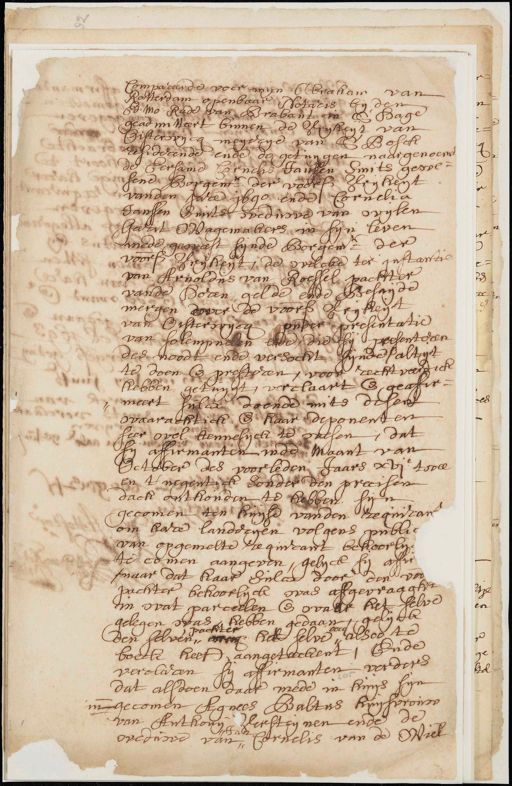 Compareerde voor mijn
Rotterdam openbaar Notaris by den
Ed: Ho: Rade van Brabant in S Hage
geadmitteert binnen de Vryheyt van
Oisterwyck meyerye van S Bosch
residerende ende de getuygen naergenoemt
de Persoone Cornelis Jansen Smits geswo-
rens Borgemr der voors: Vryheyt
vanden Jare 1690 ende Cornelia
Jansen Smits weduwe van wylen
Wagemakers in syn leven
mede geweest synde Borgemr der
voors Vryheyt, de welcke ter instantie
van Arnoldus van Roessel pachter
vande Hoorn gelde ende Besayde
mergen over de voors Vryheyt
van Oisterwyck onder presentatie
van solempnelen eede die sy presenteren
des noodt ende versocht synde altyt
te doen & presteren, voor recht
hebben getuygt, verclaert & geaffir-
meert sulcx doende mits desen
waarachtich & haer deponenten
seer wel kennelyck te wesen, dat
sy affirmanten inde Maant van
October des voorleden Jaars XVIc tsoe
en t'negentich sonder den precisen
dach onthouden te hebben syn
gecomen ten huyse vanden requirant
om hare landeryen volgens public
van opgemelte requirant behoorly
te comen aangeven, gelyck sy affir
maar dat haar sulcx door den voor
pachter behoorlyck was affgevraegt
in wat parceelen & waer het selve
gelegen was hebben gedaan, gelyck
den selven pachter het selve alsoo te
boeck heeft aangeteekent, Ende
verclaren sy affirmanten verders
dat alsdoen daer mede in huys syn
gecomen Agnees Baltus huysvrouw
van Anthony Versteynen ende de
weduwe van Jan Cornelis van de Wiel